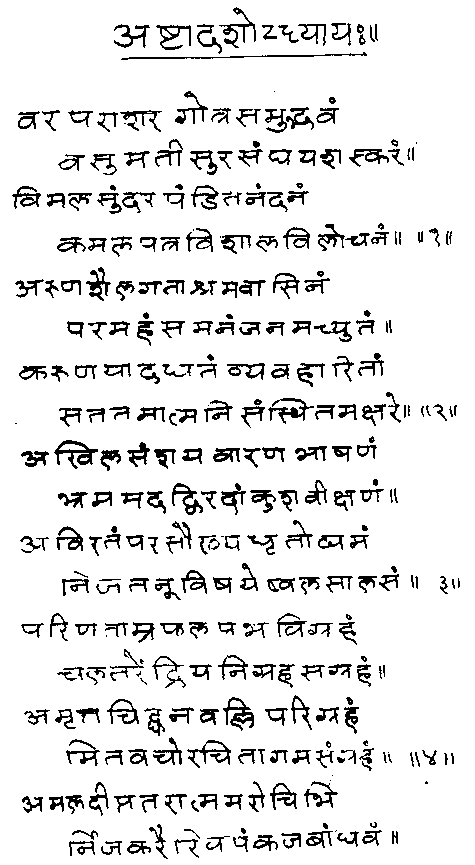 अष्टादशोऽध्यायः॥
वर पराशर गोत्रसमुद्भवं
वसुमतीसुरसंघयशस्करं॥
विमल सुंदर पंडितनंदनं
कमलपत्रविशालविलोचनं॥ ॥१॥
अरुणशैलगताश्रमवासिनं
परमहंसमनंजनमच्युतं॥
करुणयादधतं व्यवहारितां
सततमात्मनि संस्थितमक्षरे॥ ॥२॥
अखिलसंशयवारण भाषणं
भ्रममदद्विरदांकुशवीक्षणं॥
अविरतंपरसौख्यधृतोद्यमं
निजतनूविषयेष्वलसालसं॥ ३॥
परिणताम्रफलप्रभविग्रहं
चलतरेंद्रियनिग्रहसग्रहं॥
अमृतचिद्धनवल्लिपरिग्रहं
मितवचोरचितागमसंग्रहं॥ ॥४॥
अमलदीप्ततरात्ममरोचिभि
र्निजकरैरिवपंकजबांधवं॥